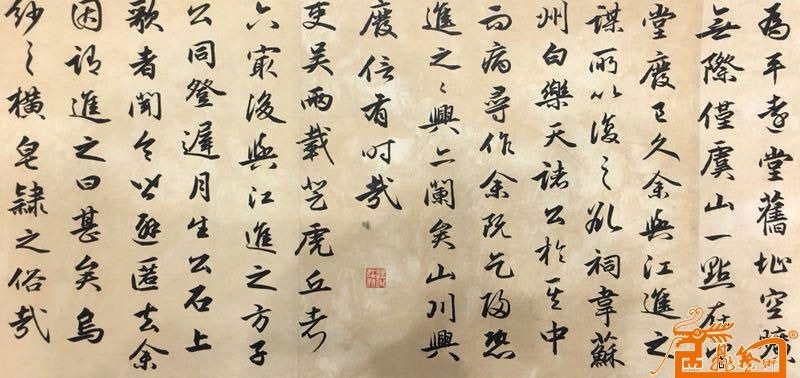 為平遠堂舊址空曠
無際僅虞山一點在
堂廢已久余與江進之
謀所以復之欲祠韋蘇
州白樂天諸公於其中
而病尋作余既乞歸恐
進之之興亦闌矣山川興
廢信有时哉
吏吳兩載登虎丘者
六最後與江進之方子
公同登遲月生公石上
歌者聞令皆避匿去余
因謂進之曰甚矣烏
紗之橫皂隸之俗哉